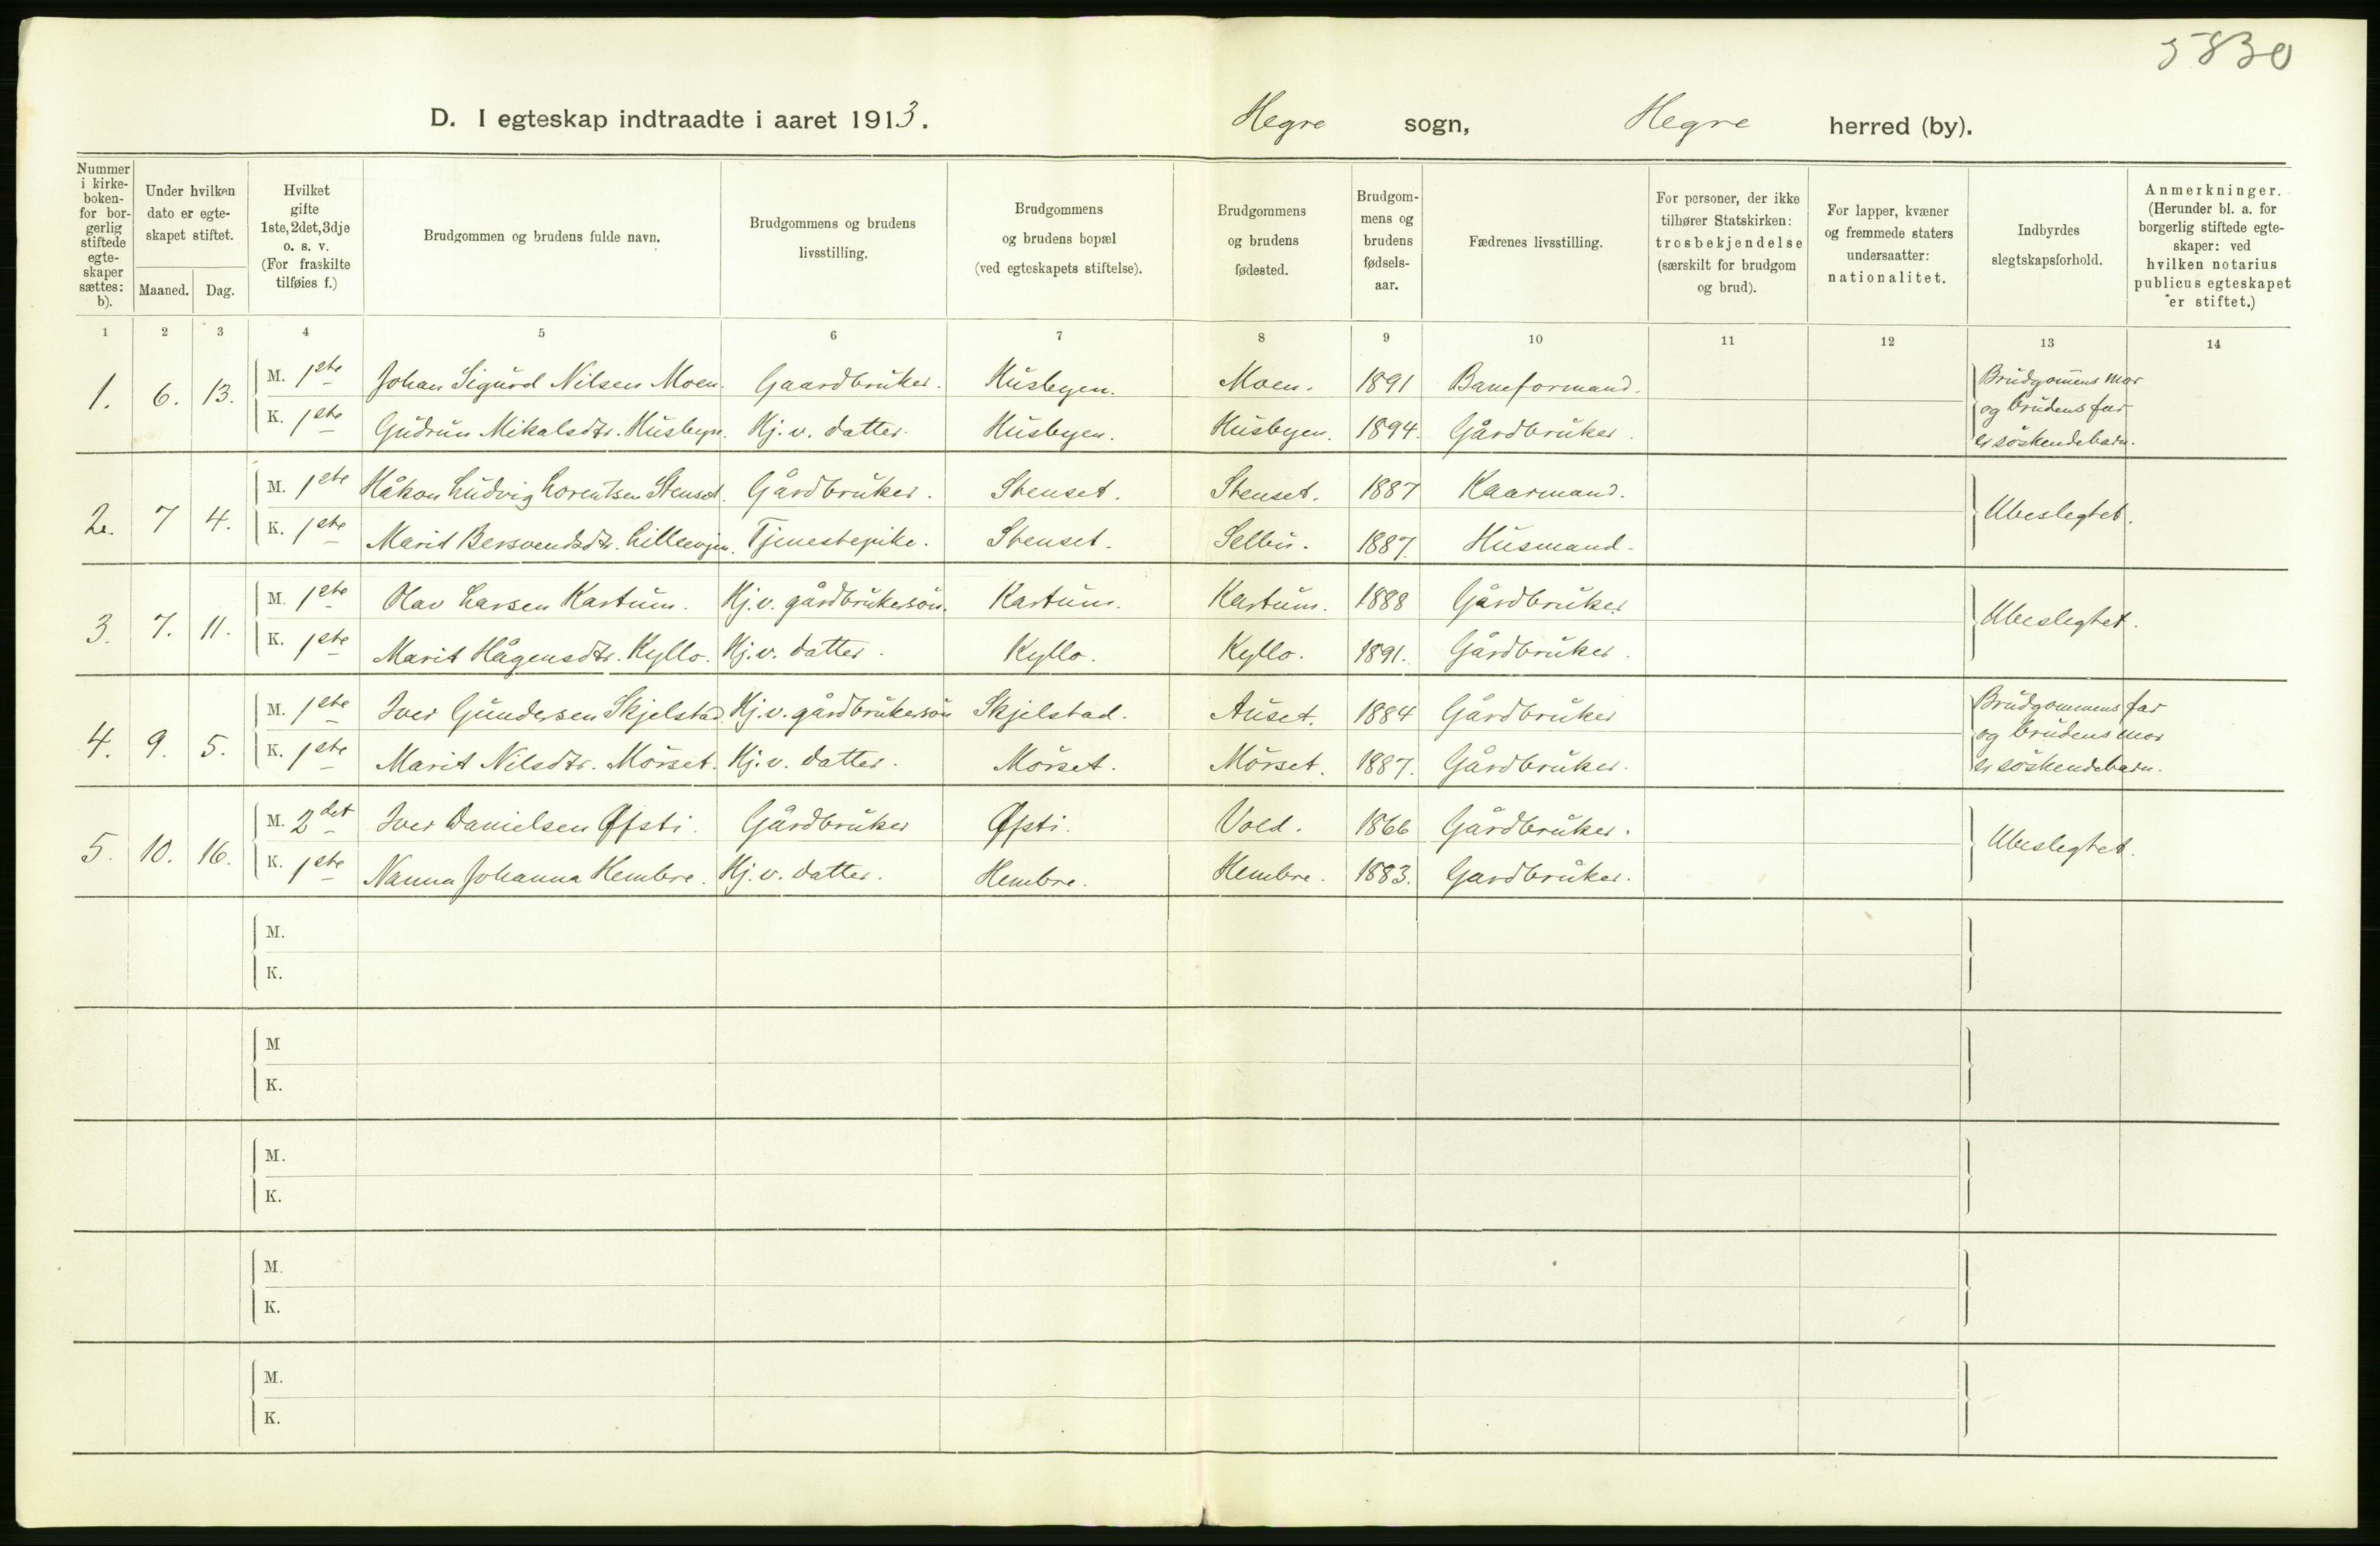 5830
D. I egteskap indtraadte i aaret 1913. Hegre sogn, Hegre herred (by).
Nummer i kirkeboken- for borgerlig stiftede egteskaper sættes: b).
Under hvilken dato er egteskapet stiftet.
Maaned. Dag.
Hvilket gifte 1ste, 2det, 3dje o. s. v. (For fraskilte tilføies f.)
Brudgommen og brudens fulde navn.
Brudgommens og brudens livsstilling.
Brudgommens og brudens bopæl (ved egteskapets stiftelse).
Brudgommens og brudens fødested.
Brudgommens og brudens fødselsaar.
Fædrenes livsstilling.
For personer, der ikke tilhører Statskirken: trosbekjendelse (særskilt for brudgom og brud).
For lapper, kvæner og fremmede staters undersaatter: nationalitet.
Indbyrdes slegtskapsforhold.
Anmerkninger. (Herunder bl. a. for borgerlig stiftede egteskaper: ved hvilken notarius publicus egteskapet er stiftet.)
1 2 3 4 5 6 7 8 9 10 11 12 13 14
1. 6. 13. M. 1ste Johan Sigurd Nilsen Moen. Gaardbruker. Husbyen. Moen. 1891 Baneformand. Brudgomens mor
K. 1ste Gudrun Mikalsdtr. Husbyn. Hj. v. datter. Husbyen. Husbyen. 1894. Gårdbruker. og brudens far
er söskendebarn.
2. 7 4. M. 1ste Håkon Ludvig Lorentsen Stenset. Gårdbruker. Stenset. Stenset. 1887 Kaarmand. Ubeslegtet.
K. 1ste Marit Bersvendsdtr. Tjenestepike. Stenset. Selbu. 1887. Husmand.
3. 7. 11. M. 1ste Olav Larsen Kartum. Hj. v. gårdbrukersön. Kartum. Kartum. 1888 Gårdbruker Ubeslegtet.
K. 1ste Marit Hågensdtr. Kyllo. Hj. v. datter. Kyllo. Kyllo. 1891. Gårdbruker.
4. 9. 5. M. 1ste Iver Gundersen Skjelstad Hj. v. gårdbrukersön Skjelstad. Auset. 1884 Gårdbruker Brudgommens far
K. 1ste Marit Nilsdtr. Mörset. Hj. v. datter. Mörset. Mörset. 1887. Gårdbruker. og brudens mor
er söskendebarn.
5. 10. 16. M. 2det Iver Danielsen Øfsti. Gårdbruker Øfsti. Vold. 1866 Gårdbruker. Ubeslegtet.
K. 1ste Nanna Johanna Hembre. Hj. v. datter. Hembre. Hembre. 1883. Gardbruker.
M.
K.
M
K.
M.
K.
M.
K.
M.
K.